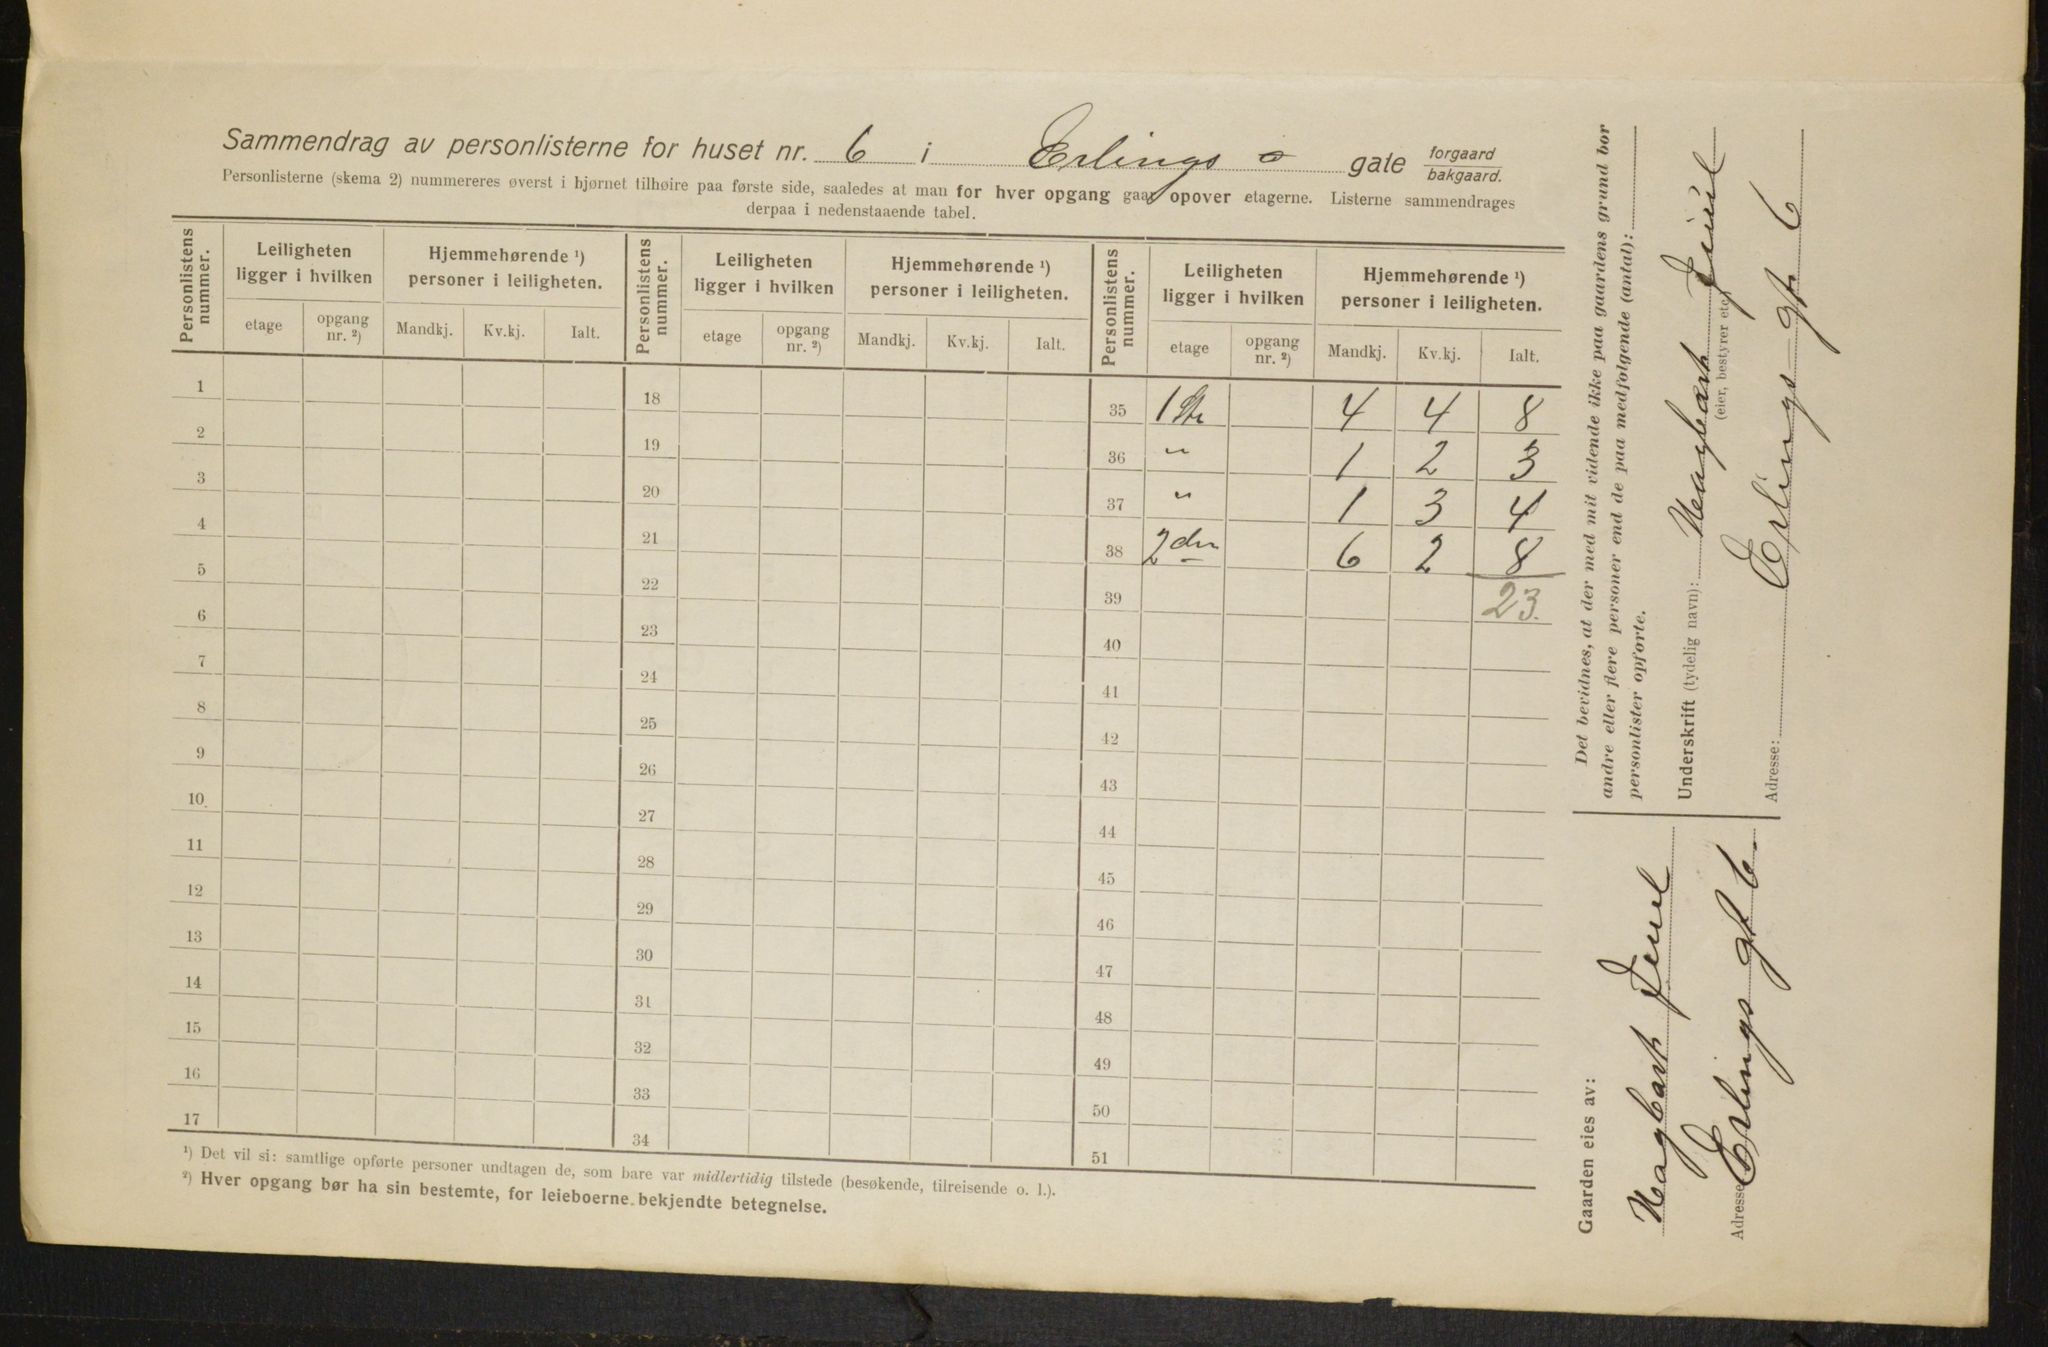 Sammendrag av personlisterne for huset nr. 6 i Erlings gate forgaard bakgaard.
Personlisterne (skema 2) nummereres øverst i hjørnet tilhøire paa første side, saaledes at man for hver opgang gaar opover etagerne. Listerne sammendrages
derpaa i nedenstaaende tabel.
Personlistens nummer. Leiligheten ligger i hvilken Hjemmehørende ¹) personer i leiligheten. Personlistens nummer. Leiligheten ligger i hvilken Hjemmehørende ¹) personer i leiligheten. Personlistens nummer. Leiligheten ligger i hvilken Hjemmehørende ¹) personer i leiligheten.
etage opgang nr. ²) Mandkj. Kv.kj. Ialt. etage opgang nr. ²) Mandkj. Kv.kj. Ialt. etage opgang nr. ²) Mandkj. Kv.kj. Ialt.
1 18 35 1 Ste 4 4 8
2 19 36 " 1 2 3
3 20 37 " 1 3 4
4 21 38 2den 6 2 8
5 22 39 23.
6 23 40
7 24 41
8 25 42
9 26 43
10 27 44
11 28 45
12 29 46
13 30 47
14 31 48
15 32 49
16 33 50
17 34 51
¹) Det vil si: samtlige opførte personer undtagen de, som bare var midlertidig tilstede (besøkende, tilreisende o. l.).
²) Hver opgang bør ha sin bestemte, for leieboerne bekjendte betegnelse.
Det bevidnes, at der med mit vidende ikke paa gaardens grund bor
andre eller flere personer end de paa medfølgende (antal):
personlister opførte.
Underskrift (tydelig navn): Hagbart Juul
(eier, bestyrer etc.)
Adresse: Erlings-gt. 6
Gaarden eies av:
Hagbart Juul
Adresse Erlings gt 6.